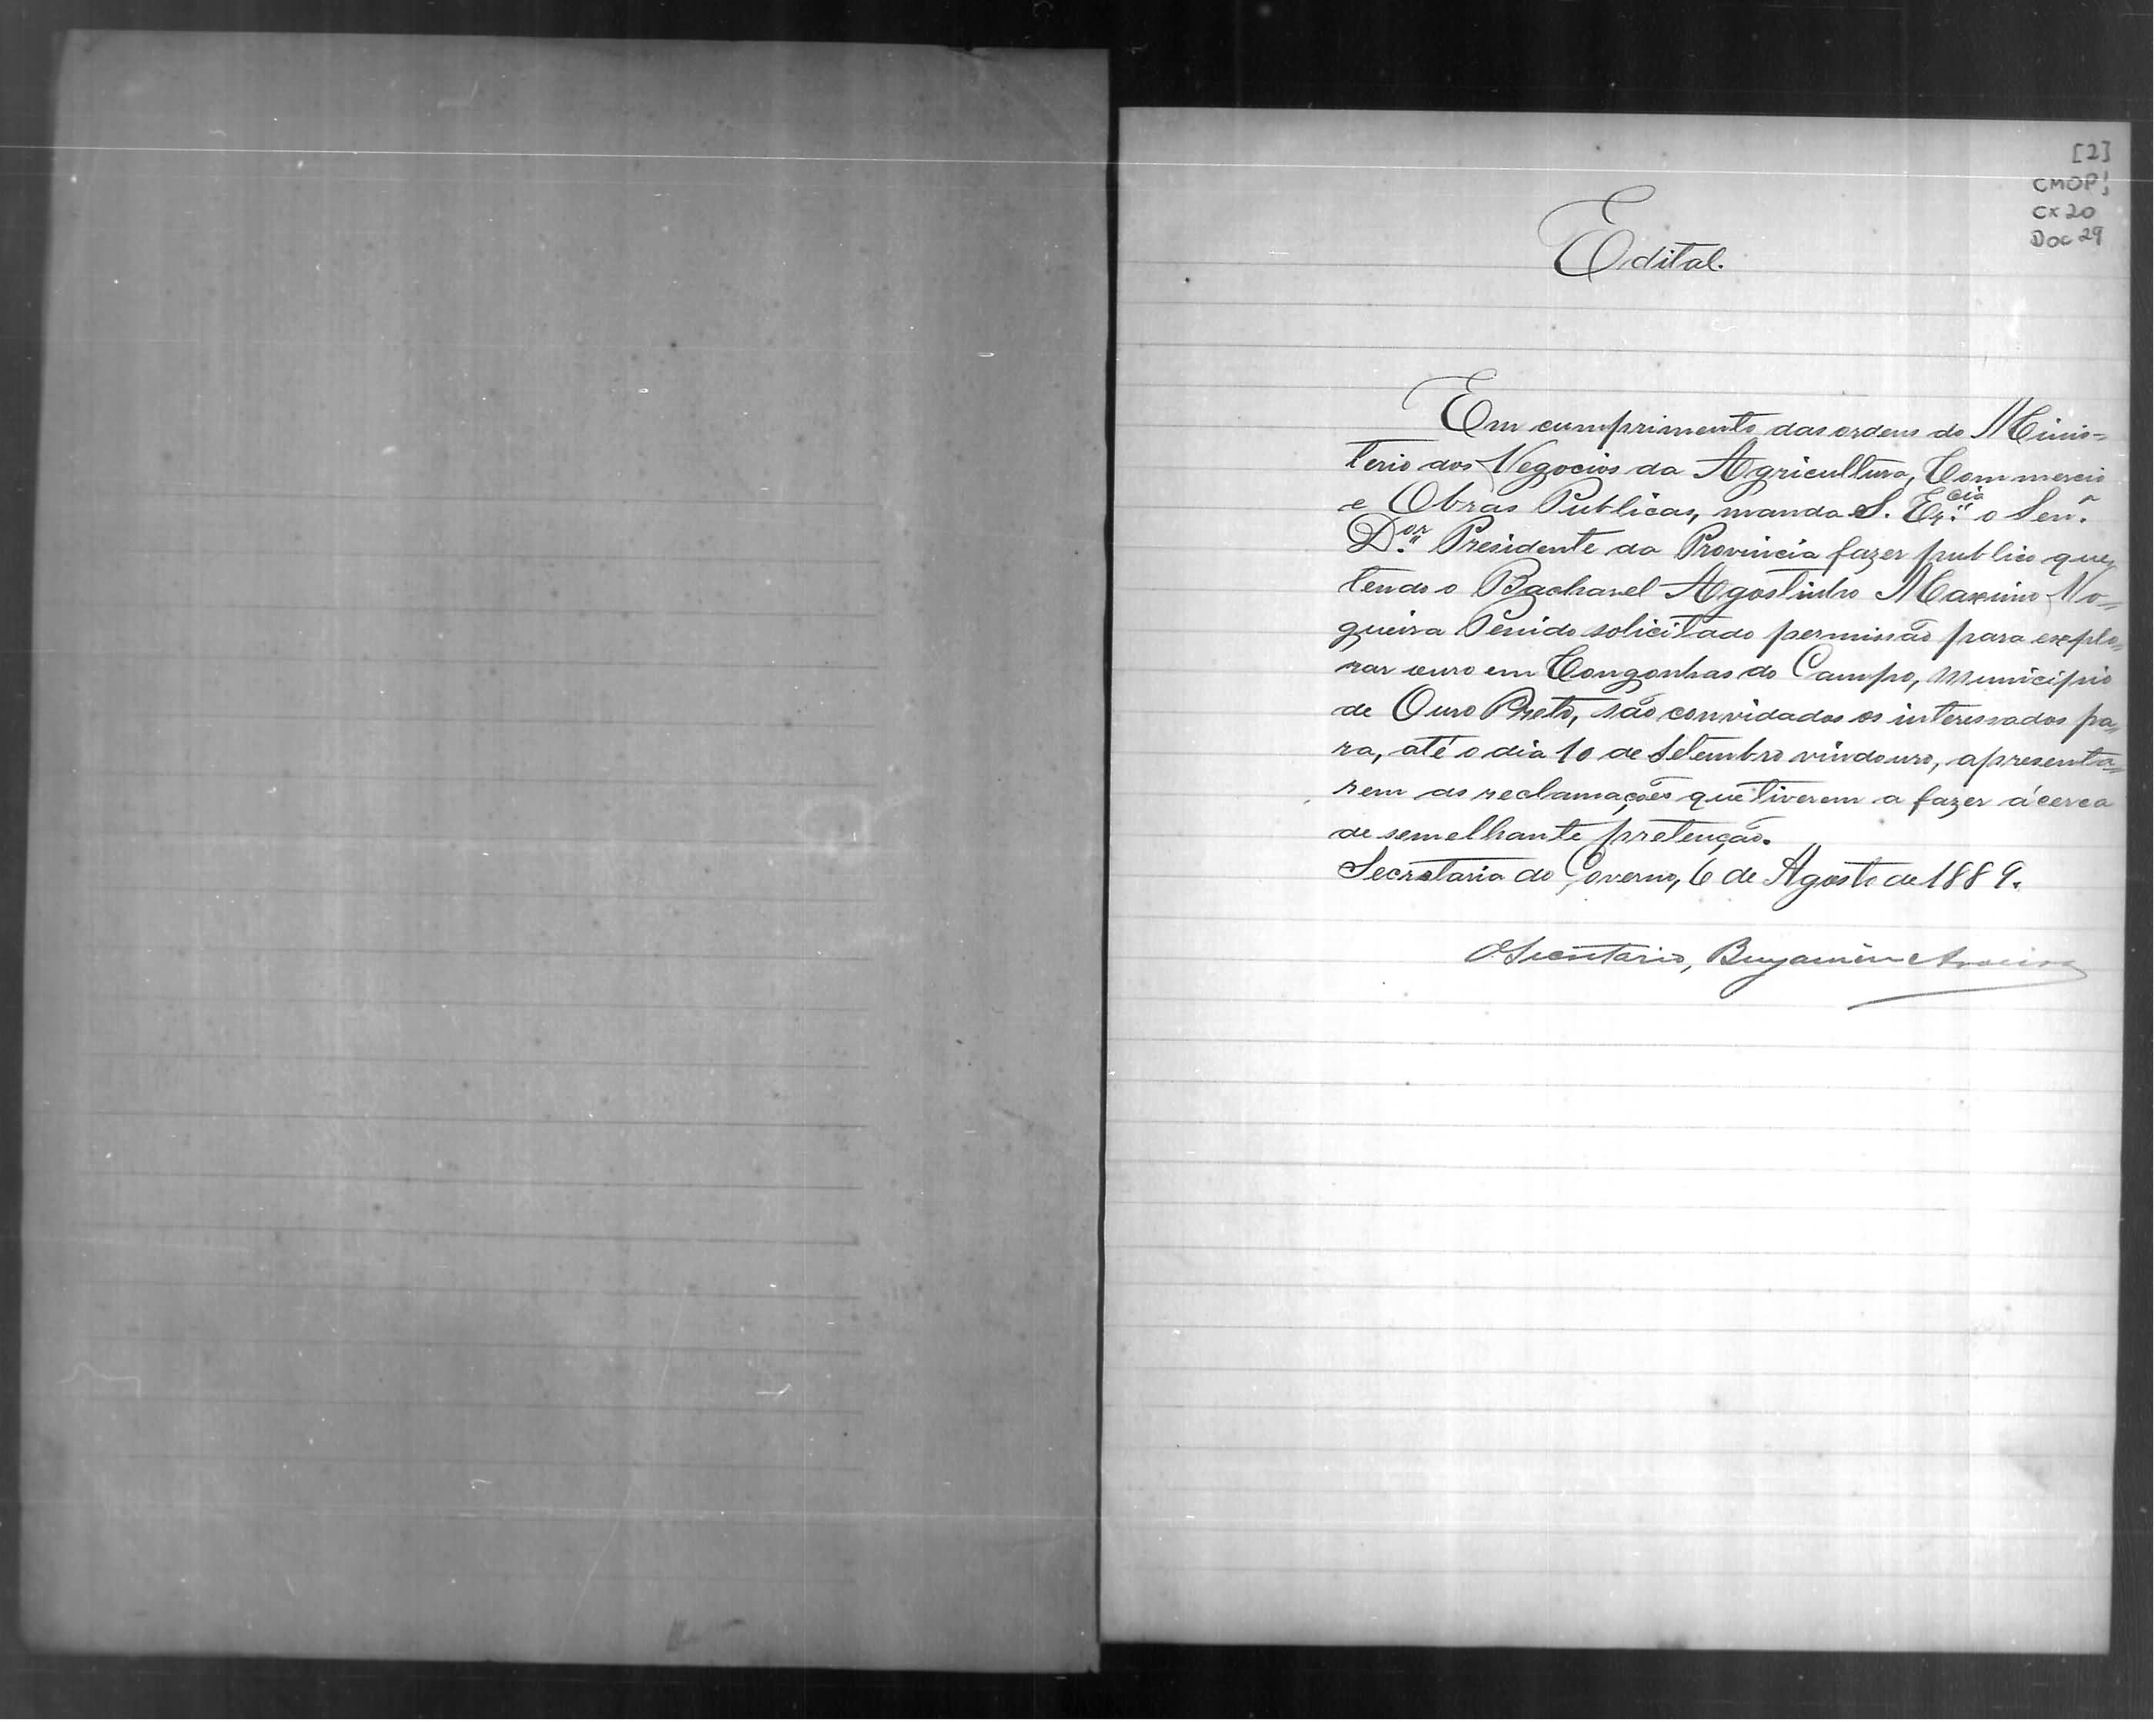 [2]
CMOP
Cx 20
Doc 29
Edital.
Em cumprimento das ordens do Minis=
terio dos Negocios da Agricultura, Commercio
e Obras Publicas, manda S. Ex.cia o Sen.r
D.or Presidente da Provincia fazer publico que,
tendo o Bacharel Agostinho Maximo No=
gueira Penido solicitado permissão para explo=
rar ouro em Congonhas do Campo, municipio
de Ouro Preto, são convidados os interessados pa=
ra, até o dia 10 de Setembro vindouro, apresenta=
rem as reclamações que tiverem a fazer ácerca
de semelhante pretenção.
Secretaria do Governo, 6 de Agosto de 1889.
O Secretario, Benjamim